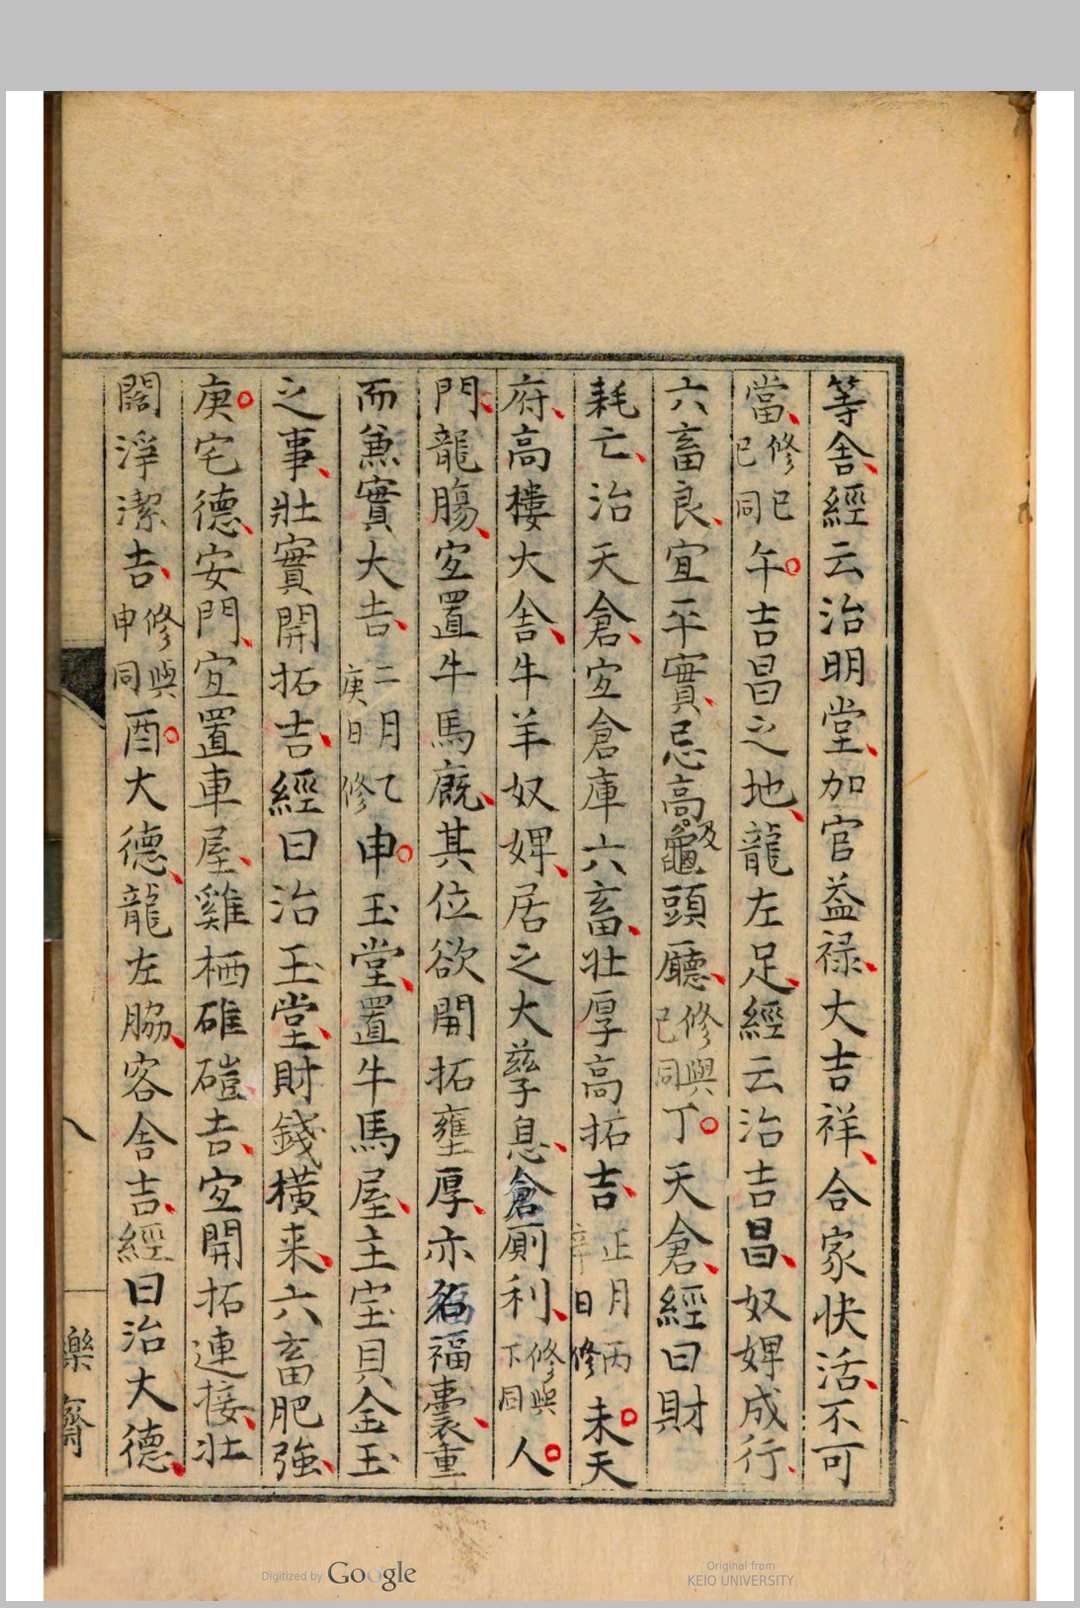 等舍經云治明堂加官益禄大吉祥合家快活不可
當修巳巳同午吉昌之地龍左足經云治吉昌奴婢成行
六畜良宜平實忌高及龜頭廳修與巳同丁天倉經曰財
耗亡治天倉宜倉庫六畜壮厚高拓吉正月丙辛日修未天
府高樓大舍牛羊奴婢居之大孳息倉厠利修與下同人
門龍腸宜置牛馬廐其位欲開拓壅厚亦名福囊重
而兼實大吉二月乙庚日修申玉堂置牛馬屋主宝貝金玉
之事壯實開拓吉經曰治玉堂財錢横来六畜肥強
庚宅德安門宜置車屋雞栖碓磑吉宜開拓連接壯
闊淨潔吉修與申同酉大德龍左脇客舍吉經曰治大德
八
樂齋
Digitized by Google
Original from
KEIO UNIVERSITY